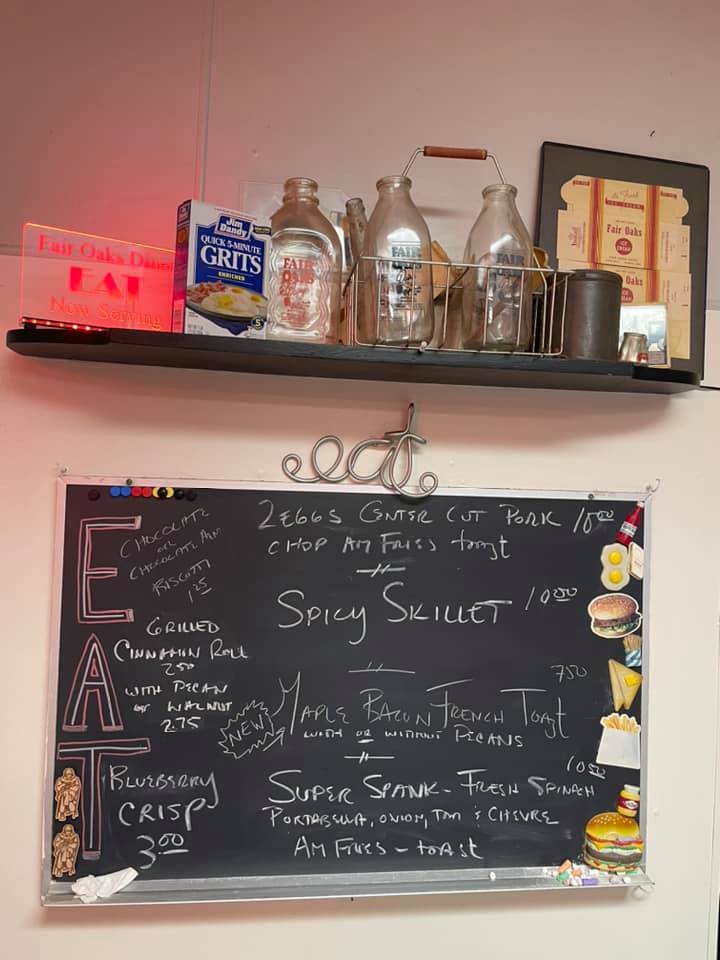 Fair Oaks Diner
EAT
Now Serving
Jim
Dandy
QUICK 5-MINUTE
GRITS
ENRICHED
5
FAIR
OAKS
FAIR
FAIR
ICE CREAM
Fair Oaks
ICE
CREAM
Fair Oaks
eat
EAT
CHOCOLATE
OR
CHOCOLATE ALM
BISCOTTI
1.25
GRILLED
CINNAMIN ROLL
2.50
WITH PECAN
OR WALNUT
2.75
BLUEBERRY
CRISP
3.00
2 EGGS CENTER CUT PORK 10.00
CHOP AM FRIES toast
SPICY SKILLET 10.00
7.50
NEW! MAPLE BACON FRENCH TOAST
WITH OR WITHOUT PECANS
10.50
SUPER SPANK - FRESH SPINACH
PORTABELLA, ONION, TOM & CHEVRE
AM FRIES - toast